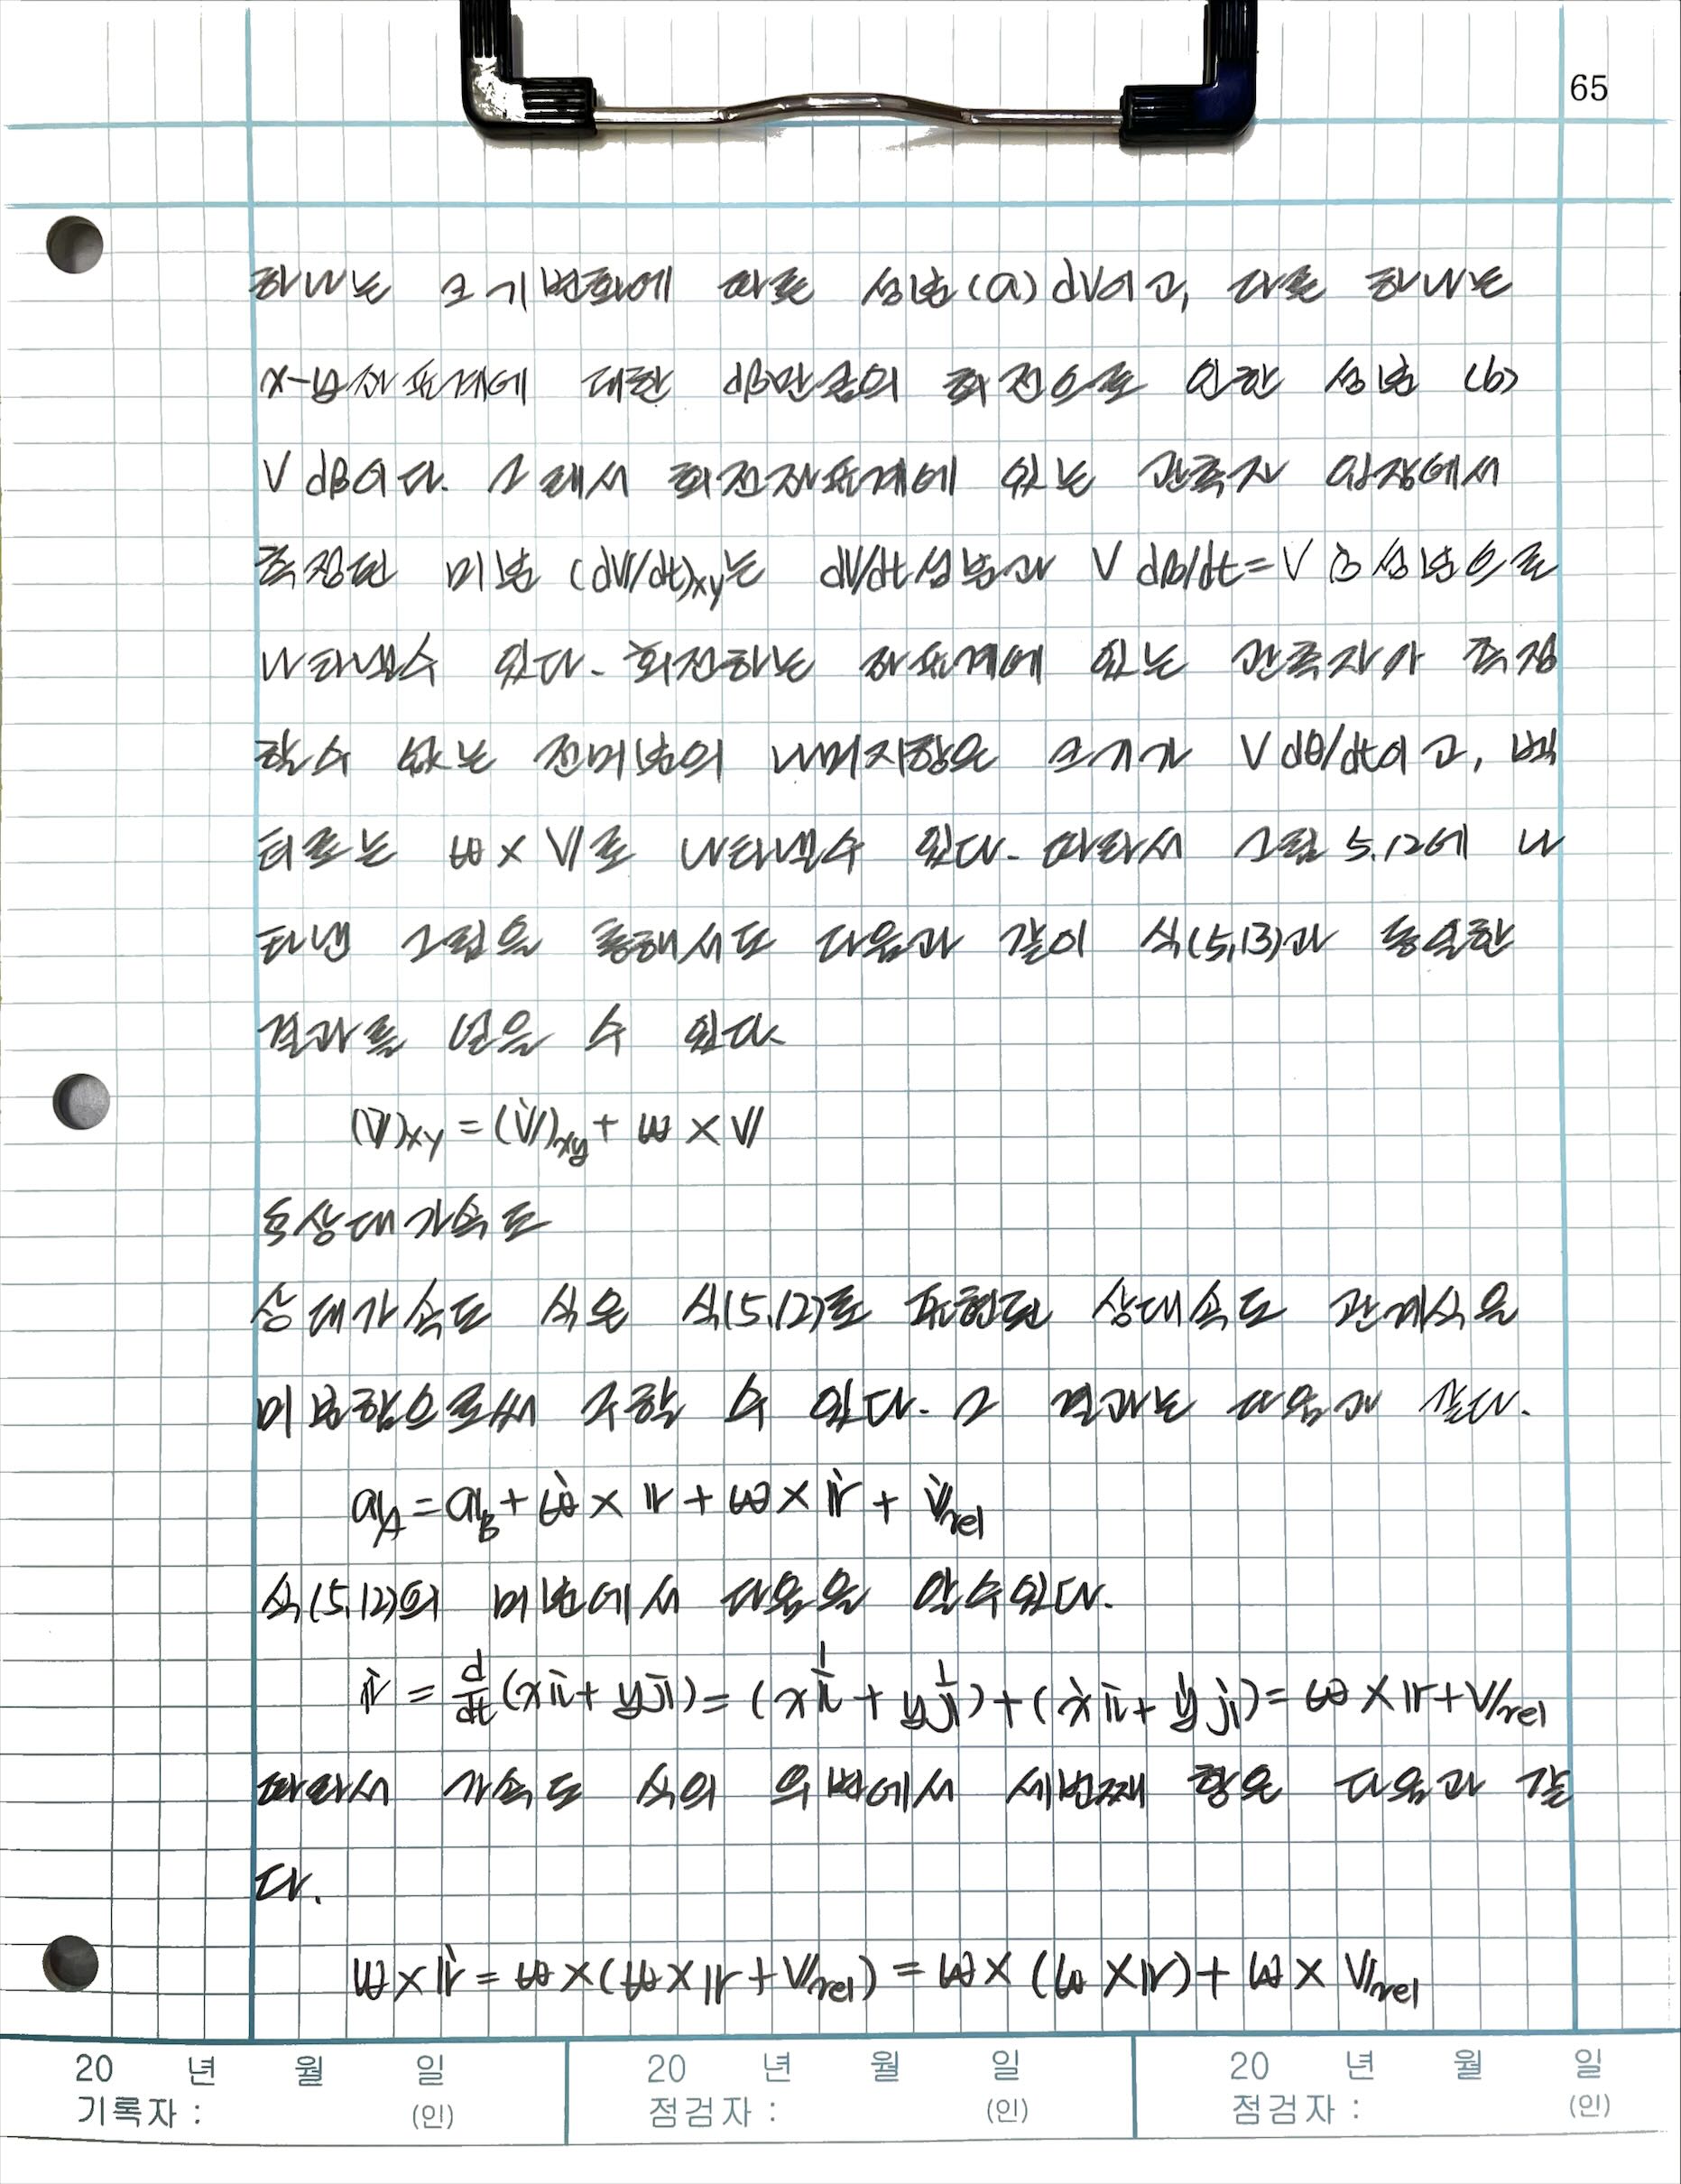 65
하나는 크기변화에 따른 성분(a) dV이고, 다른 하나는
x-y좌표계에 대한 dβ만큼의 회전으로 인한 성분 (b)
V dβ이다. 그래서 회전좌표계에 있는 관측자 입장에서
측정된 미분 (dV/dt)xy는 dV/dt성분과 V dβ/dt=V β̇ 성분으로
나타낼수 있다. 회전하는 좌표계에 있는 관측자가 측정
할수 없는 전미분의 나머지항은 크기가 V dθ/dt이고, 벡
터로는 ω × V로 나타낼수 있다. 따라서 그림 5.12에 나
타낸 그림을 통해서도 다음과 같이 식(5.13)과 동일한
결과를 얻을 수 있다.
(V̇)XY = (V̇)xy + ω × V
상대가속도
상대가속도 식은 식(5.12)로 표현된 상대속도 관계식을
미분함으로써 구할 수 있다. 그 결과는 다음과 같다.
aA = aB + ω̇ × r + ω × ṙ + v̇rel
식(5.12)의 미분에서 다음을 알수있다.
ṙ = d/dt (xi + yj) = (xi̇ + yj̇) + (ẋi + ẏj) = ω × r + Vrel
따라서 가속도 식의 우변에서 세번째 항은 다음과 같
다.
ω × ṙ = ω × (ω × r + Vrel) = ω × (ω × r) + ω × Vrel
20 년 월 일 20 년 월 일 20 년 월 일
기록자 : (인) 점검자 : (인) 점검자 : (인)